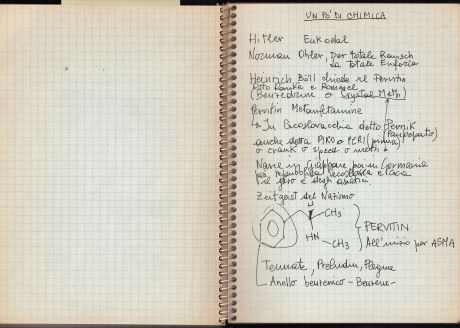 UN PO' DI CHIMICA
Hitler Eukodal
Norman Ohler, Der totale Rausch
La Totale Euforia
Heinrich Böll chiede il Pervitin
Otto Ranke e Rommel
(Benzedrine o Crystal Meth)
Pervitin Metanfetamine
↳ In Cecoslovacchia detto Pernik
(Panpepato)
anche detta PIKO o PERI (prima)
o crank o speed o meth
Nasce in Giappone poi in Germania
poi repubblica cecoslovacca e
il giro è degli
Zeitgeist del Nazismo
CH3
HN
CH3
PERVITIN
All'inizio per ASMA
Tenuate, Preludin, Plegine
Anello benzenico - Benzene -